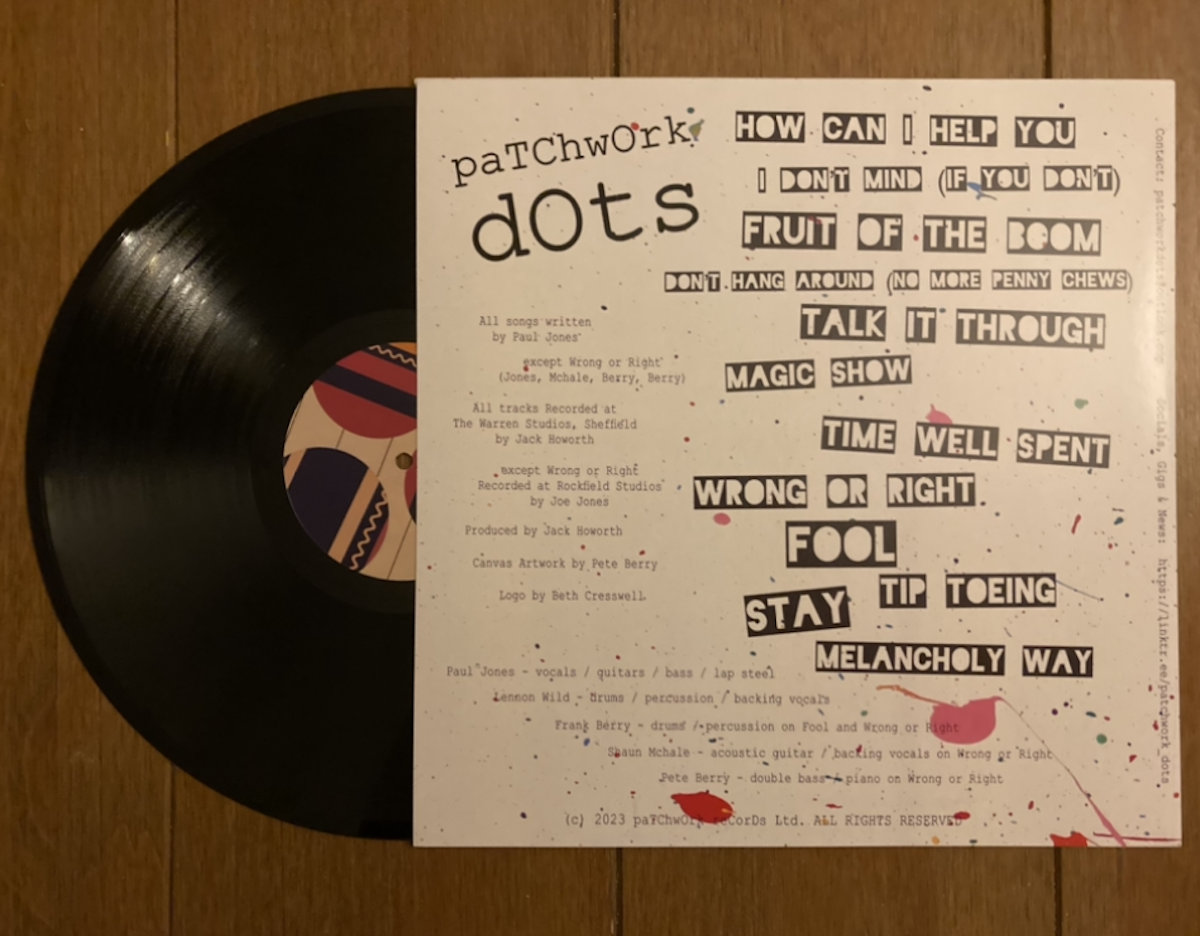 paTChwOrk
dOts
HOW CAN I HELP YOU
I DON'T MIND (IF YOU DON'T)
FRUIT OF THE BOOM
DON'T HANG AROUND (NO MORE PENNY CHEWS)
TALK IT THROUGH
MAGIC SHOW
TIME WELL SPENT
WRONG OR RIGHT
FOOL
TIP TOEING
STAY
MELANCHOLY WAY
All songs written
by Paul Jones
except Wrong or Right
(Jones, Mchale, Berry, Berry)
All tracks Recorded at
The Warren Studios, Sheffield
by Jack Howorth
except Wrong or Right
Recorded at Rockfield Studios
by Joe Jones
Produced by Jack Howorth
Canvas Artwork by Pete Berry
Logo by Beth Cresswell
Paul Jones - vocals / guitars / bass / lap steel
Lennon Wild - drums / percussion / backing vocals
Frank Berry - drums / percussion on Fool and Wrong or Right
Shaun Mchale - acoustic guitar / backing vocals on Wrong or Right
Pete Berry - double bass / piano on Wrong or Right
(c) 2023 paTChwOrk reCorDs Ltd. ALL RIGHTS RESERVED
Contact: Socials, Gigs & News: https://linktr.ee/patchwork_dots